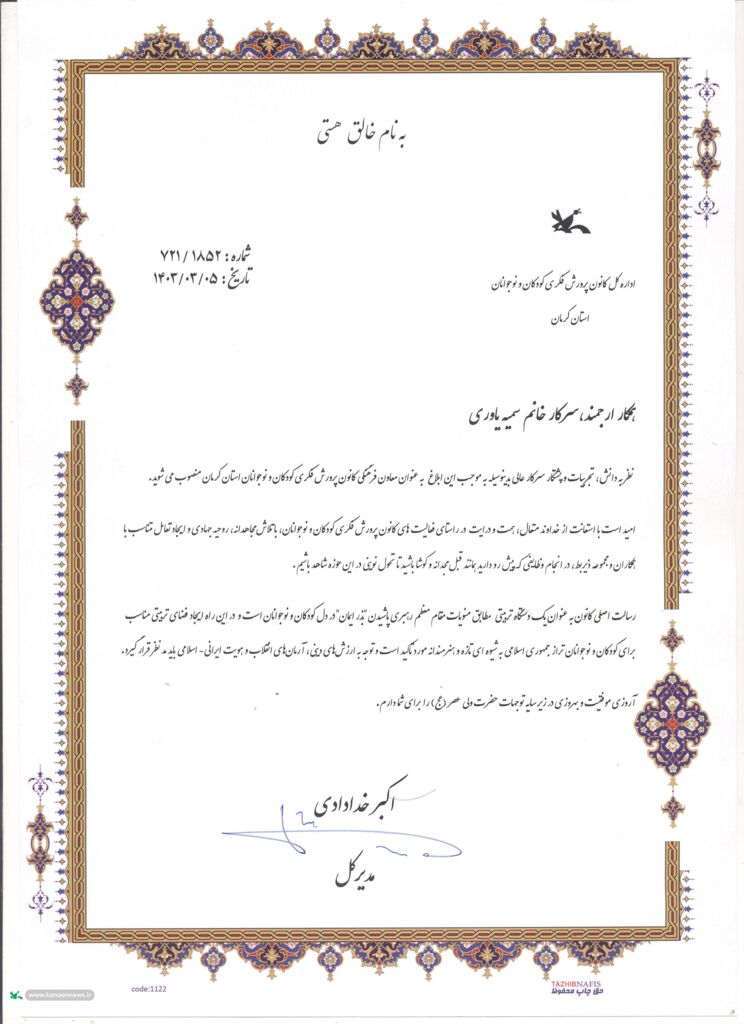 به نام خالق هستی
شماره : ۷۲۱/۱۸۵۲
تاریخ : ۱۴۰۳/۰۳/۰۵
اداره کل کانون پرورش فکری کودکان و نوجوانان
استان کرمان
همکار ارجمند، سرکار خانم سمیه یاوری
نظر به دانش، تجربیات و پشتکار سرکار عالی بدینوسیله به موجب این ابلاغ به عنوان معاون فرهنگی کانون پرورش فکری کودکان و نوجوانان استان کرمان منصوب می شوید.
امید است با استعانت از خداوند متعال، همت و درایت در راستای فعالیت های کانون پرورش فکری کودکان و نوجوانان، با تلاش مجاهدانه، روحیه جهادی و ایجاد تعامل متناسب با
همکاران و مجموعه ذیربط، در انجام وظایفی که پیش رو دارید همانند قبل مجدانه و کوشا باشید تا تحول نوینی در این حوزه شاهد باشیم.
رسالت اصلی کانون به عنوان یک دستگاه تربیتی مطابق منویات مقام معظم رهبری پاشیدن "بذر ایمان" در دل کودکان و نوجوانان است و در این راه ایجاد فضای تربیتی مناسب
برای کودکان و نوجوانان تراز جمهوری اسلامی به شیوه ای تازه و هنرمندانه مورد تاکید است و توجه به ارزش های دینی، آرمان های انقلاب و هویت ایرانی - اسلامی باید مد نظر قرار گیرد.
آرزوی موفقیت و بهروزی در زیر سایه توجهات حضرت ولی عصر (عج) را برای شما دارم.
اکبر خدادادی
مدیر کل
code:1122
TAZHIBNAFIS
حق چاپ محفوظ
www.kanoonnews.ir